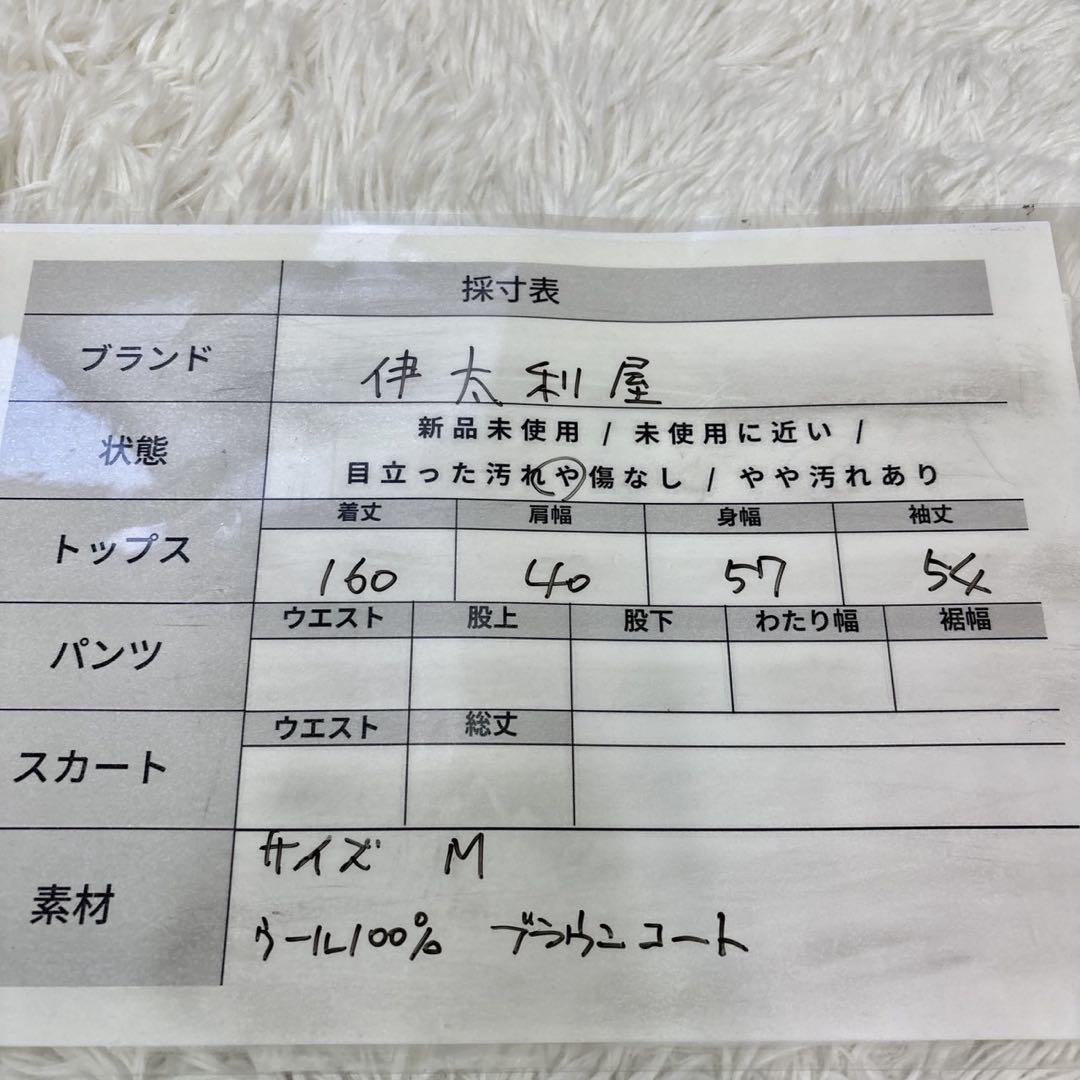 採寸表
ブランド 伊太利屋
状態 新品未使用 / 未使用に近い /
目立った汚れや傷なし / やや汚れあり
トップス 着丈 肩幅 身幅 袖丈
160 40 57 54
パンツ ウエスト 股上 股下 わたり幅 裾幅
スカート ウエスト 総丈
サイズ M
素材 ウール100% ブラウンコート